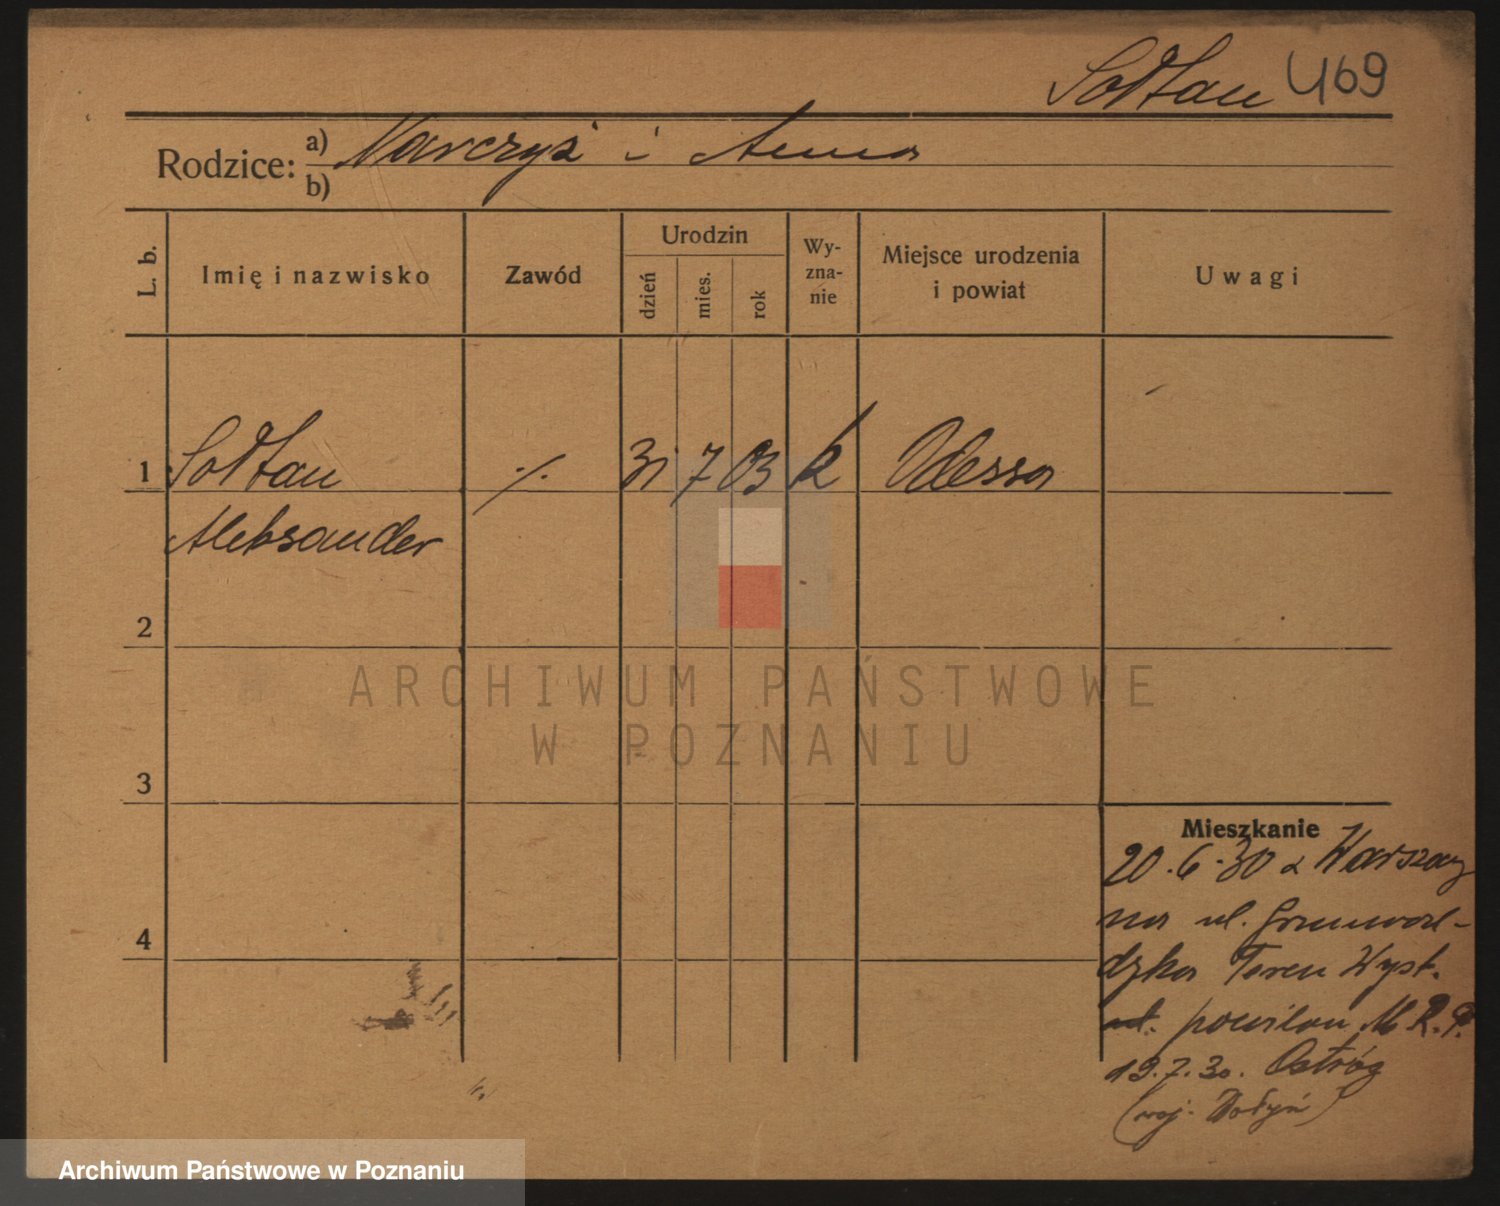 Sołtan U69
Rodzice: a) Narcyz i Anna
b)
L. b.
Imię i nazwisko
Zawód
Urodzin
dzień
mies.
rok
Wy-
zna-
nie
Miejsce urodzenia
i powiat
Uwagi
1 Sołtan ./. 31 7 03 k Odessa
Aleksander
2
3
4
Mieszkanie
20.6.30 z Warszawy
na ul. Grunwal-
dzka Teren Wyst.
pawilon M.R.P.
19.7.30. Ostróg
(woj. Wołyń)
ARCHIWUM PAŃSTWOWE
W POZNANIU
Archiwum Państwowe w Poznaniu